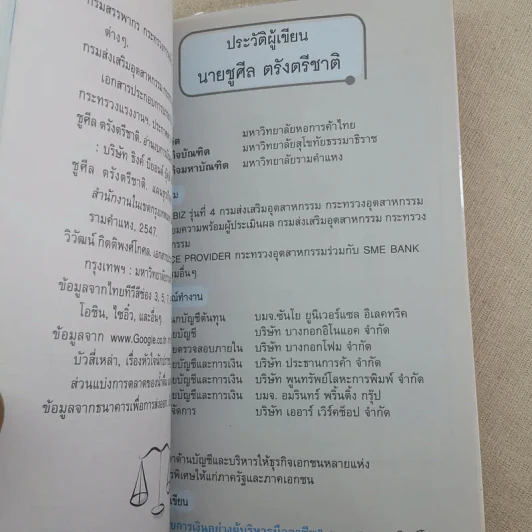 กรมสรรพากร กระทรวงการ
ต่างๆ.
กรมส่งเสริมอุตสาหกรรม
เอกสารประกอบการ
กระทรวงแรงงานฯ.
ชูศีล ตรังตรีชาติ.
: บริษัท ธิงค์ บียอนด์
ชูศีล ตรังตรีชาติ.
สำนักงานในเขตกรุงเทพ
รามคำแหง, 2547.
วิวัฒน์ กิตติพงศ์โกศล.
กรุงเทพฯ : มหาวิทยาลัย
ข้อมูลจากไทยทีวีสีช่อง 3, 5,
โอชิน, ไซอิ๋ว, และอื่นๆ.
ข้อมูลจาก www.Google.co.th
บัวสี่เหล่า,
ส่วนแบ่งการตลาดของน้ำ
ข้อมูลจากธนาคารเพื่อการส่งออก
ประวัติผู้เขียน
นายชูศีล ตรังตรีชาติ
มหาวิทยาลัยหอการค้าไทย
กิจบัณฑิต มหาวิทยาลัยสุโขทัยธรรมาธิราช
กิจมหาบัณฑิต มหาวิทยาลัยรามคำแหง
BIZ รุ่นที่ 4 กรมส่งเสริมอุตสาหกรรม กระทรวงอุตสาหกรรม
ยมความพร้อมผู้ประเมินผล กรมส่งเสริมอุตสาหกรรม กระทรวง
กรรม
CE PROVIDER กระทรวงอุตสาหกรรมร่วมกับ SME BANK
มอื่นๆ
ณ์ทำงาน
นกบัญชีต้นทุน บมจ.ซันโย ยูนิเวอร์แซล อิเลคทริค
ยบัญชี บริษัท บางกอกอิโนแอค จำกัด
ยตรวจสอบภายใน บริษัท บางกอกโฟม จำกัด
ยบัญชีและการเงิน บริษัท ประธานการค้า จำกัด
ยบัญชีและการเงิน บริษัท พูนทรัพย์โลหะการพิมพ์ จำกัด
ยบัญชีและการเงิน บมจ. อมรินทร์ พริ้นติ้ง กรุ๊ป
จัดการ บริษัท เออาร์ เวิร์คช็อป จำกัด
าด้านบัญชีและบริหารให้ธุรกิจเอกชนหลายแห่ง
รพิเศษให้แก่ภาครัฐและภาคเอกชน
เขียน